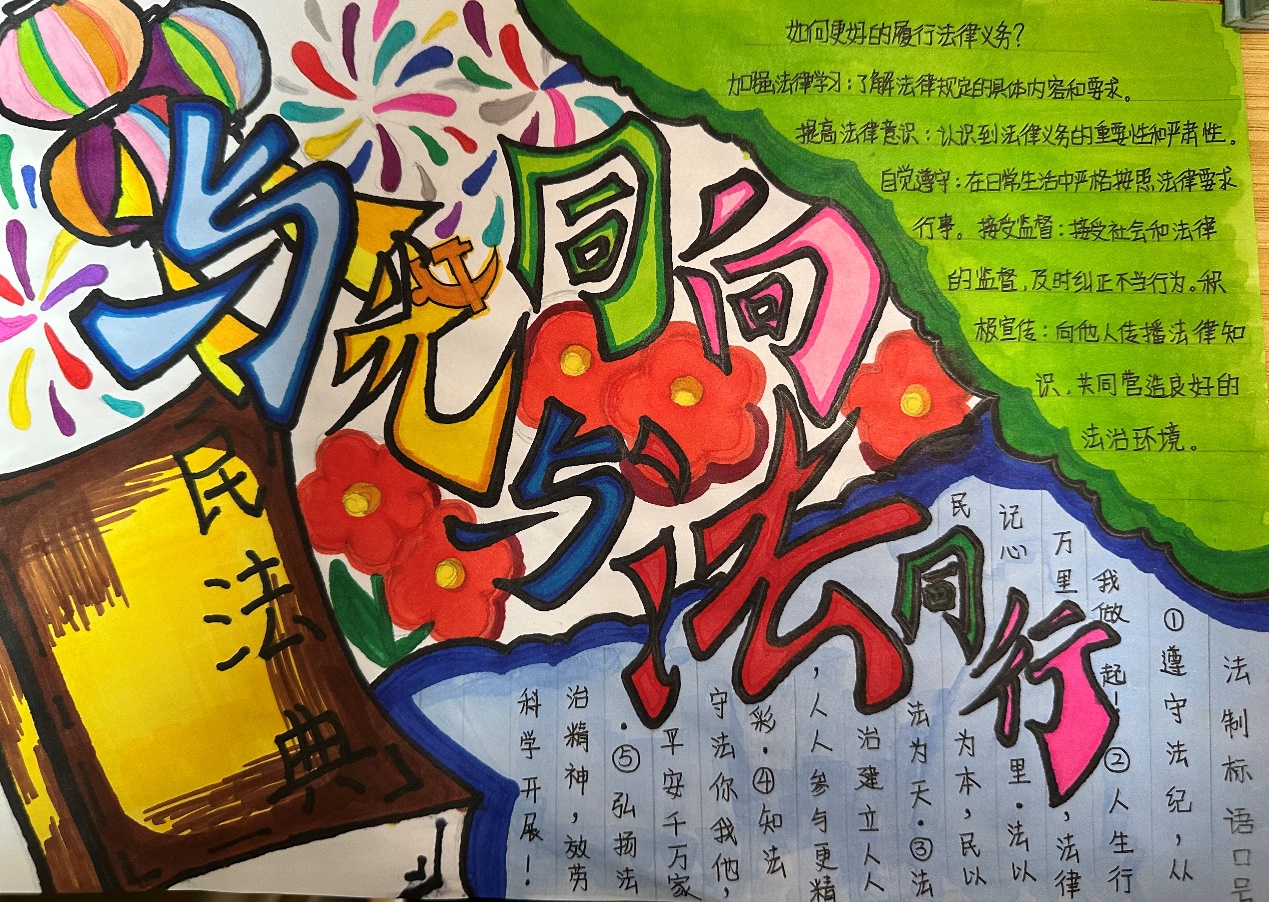 与光同向
与法同行
民法典
如何更好的履行法律义务？
加强法律学习：了解法律规定的具体内容和要求。
提高法律意识：认识到法律义务的重要性和严肃性。
自觉遵守：在日常生活中严格按照法律要求
行事。接受监督：接受社会和法律
的监督，及时纠正不当行为。积
极宣传：向他人传播法律知
识，共同营造良好的
法治环境。
法制标语口号
①遵守法纪，从
我做起！②人生行
万里，法律
记心里．法以
民为本，民以
法为天．③法
治建立人人
，人人参与更精
彩．④知法
守法你我他，
平安千万家
．⑤弘扬法
治精神，效劳
科学开展！